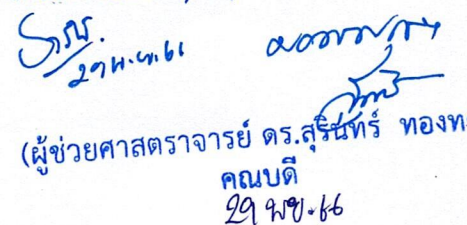 29 พ.ย. 66
(ผู้ช่วยศาสตราจารย์ ดร.สุรินทร์ ทองท
คณบดี
29 พย. 66